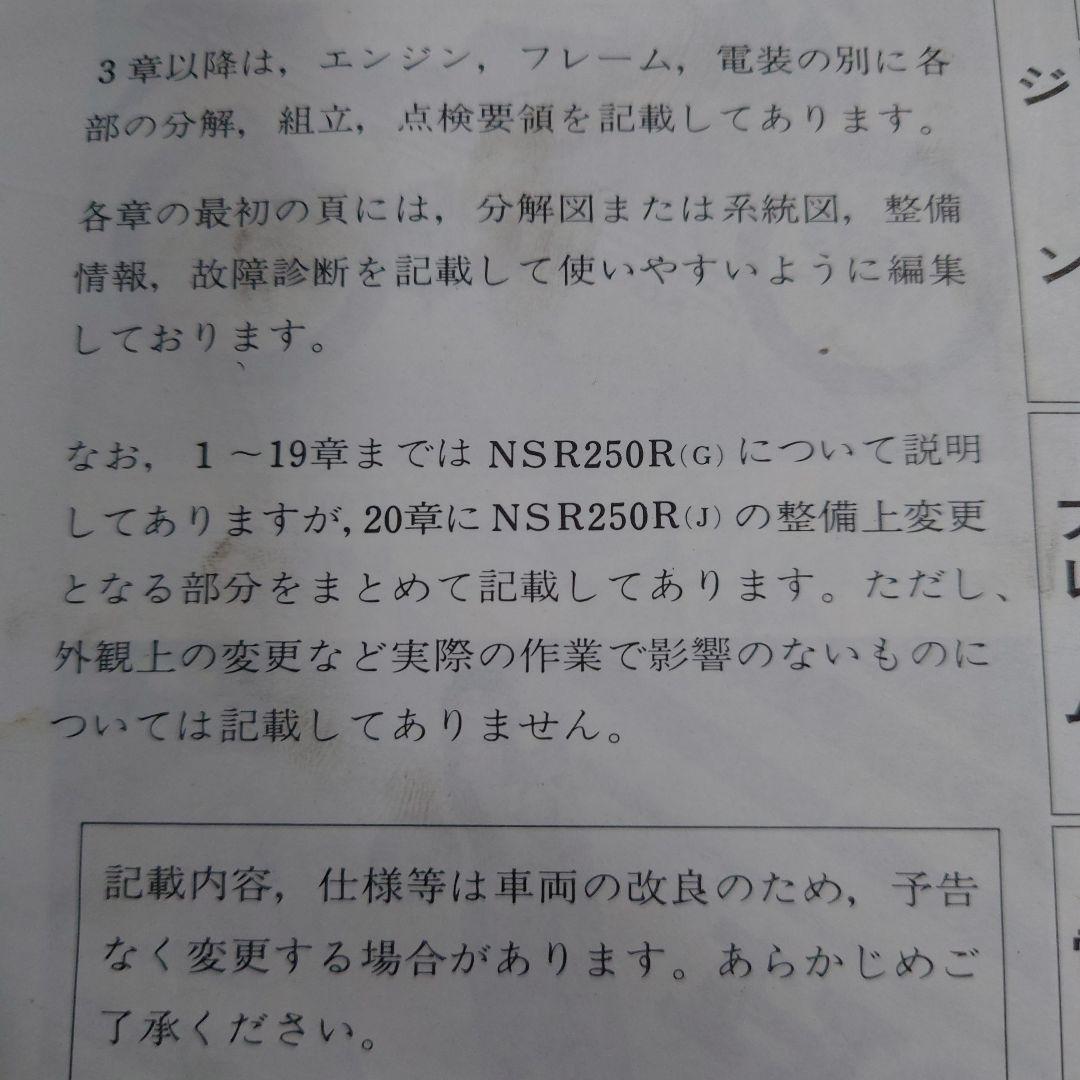 3章以降は，エンジン，フレーム，電装の別に各
部の分解，組立，点検要領を記載してあります。
各章の最初の頁には，分解図または系統図，整備
情報，故障診断を記載して使いやすいように編集
しております。
なお，1～19章まではNSR250R(G)について説明
してありますが，20章にNSR250R(J)の整備上変更
となる部分をまとめて記載してあります。ただし、
外観上の変更など実際の作業で影響のないものに
ついては記載してありません。
記載内容，仕様等は車両の改良のため，予告
なく変更する場合があります。あらかじめご
了承ください。
ジ
ン